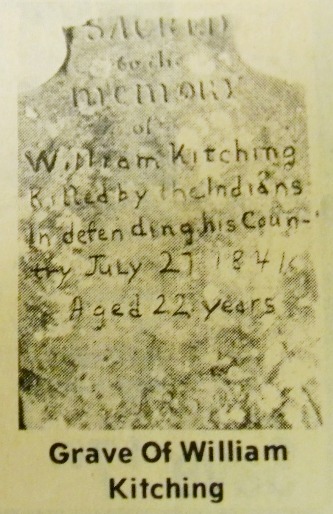 SACRED
to the
MEMORY
of
William Kitching
Killed by the Indians
In defending his Coun-
try July 27 1841
Aged 22 years
Grave Of William
Kitching